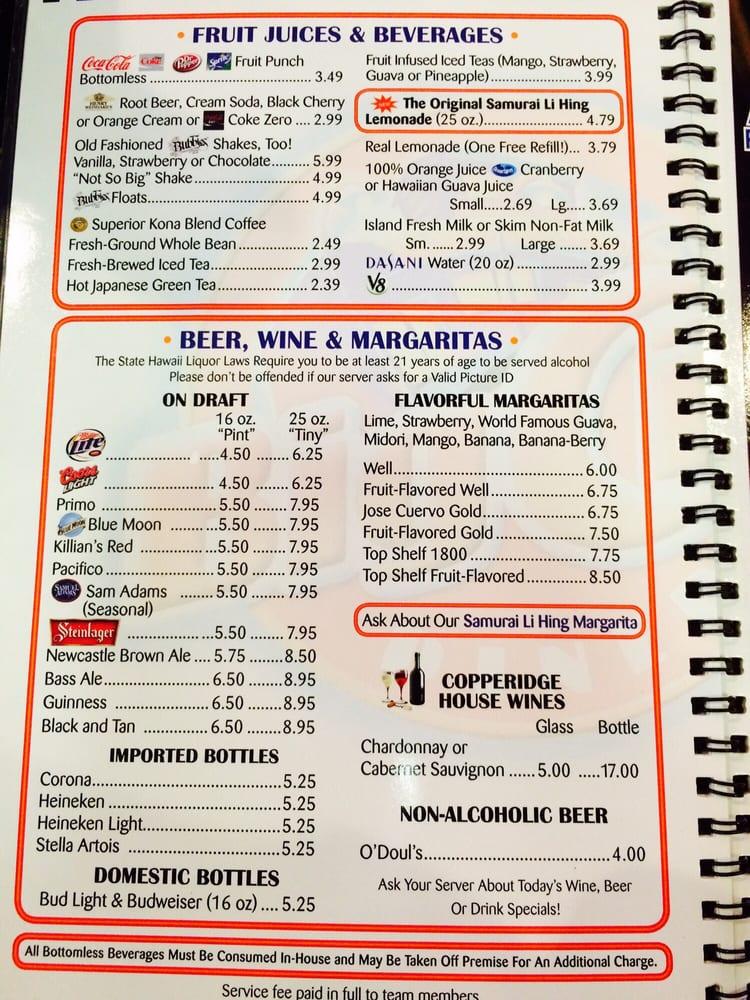 • FRUIT JUICES & BEVERAGES •
Coca-Cola Diet Coke Dr Pepper Sprite Fruit Punch
Bottomless ........ 3.49
HENRY WEINHARD'S Root Beer, Cream Soda, Black Cherry
or Orange Cream or Coke Zero .... 2.99
Old Fashioned Bubbies Shakes, Too!
Vanilla, Strawberry or Chocolate.......... 5.99
"Not So Big" Shake ........ 4.99
Bubbies Floats........ 4.99
Superior Kona Blend Coffee
Fresh-Ground Whole Bean ........ 2.49
Fresh-Brewed Iced Tea........ 2.99
Hot Japanese Green Tea........ 2.39
Fruit Infused Iced Teas (Mango, Strawberry,
Guava or Pineapple)........ 3.99
NEW The Original Samurai Li Hing
Lemonade (25 oz.)........ 4.79
Real Lemonade (One Free Refill!)... 3.79
100% Orange Juice Cranberry
or Hawaiian Guava Juice
Small.....2.69 Lg..... 3.69
Island Fresh Milk or Skim Non-Fat Milk
Sm. ..... 2.99 Large ....... 3.69
DASANI Water (20 oz) ........ 2.99
V8 ........ 3.99
• BEER, WINE & MARGARITAS •
The State Hawaii Liquor Laws Require you to be at least 21 years of age to be served alcohol
Please don't be offended if our server asks for a Valid Picture ID
ON DRAFT
16 oz. 25 oz.
"Pint" "Tiny"
Miller Lite ........ 4.50 ........ 6.25
Coors LIGHT ........ 4.50 ........ 6.25
Primo ........ 5.50 ........ 7.95
BLUE MOON Blue Moon ........ 5.50 ........ 7.95
Killian's Red ........ 5.50 ........ 7.95
Pacifico ........ 5.50 ........ 7.95
SAMUEL ADAMS Sam Adams ........ 5.50 ........ 7.95
(Seasonal)
Steinlager ........ 5.50 ........ 7.95
Newcastle Brown Ale .... 5.75 ........ 8.50
Bass Ale........ 6.50 ........ 8.95
Guinness ........ 6.50 ........ 8.95
Black and Tan ........ 6.50 ........ 8.95
IMPORTED BOTTLES
Corona........ 5.25
Heineken ........ 5.25
Heineken Light........ 5.25
Stella Artois ........ 5.25
DOMESTIC BOTTLES
Bud Light & Budweiser (16 oz) .... 5.25
FLAVORFUL MARGARITAS
Lime, Strawberry, World Famous Guava,
Midori, Mango, Banana, Banana-Berry
Well........ 6.00
Fruit-Flavored Well........ 6.75
Jose Cuervo Gold........ 6.75
Fruit-Flavored Gold ........ 7.50
Top Shelf 1800 ........ 7.75
Top Shelf Fruit-Flavored........ 8.50
Ask About Our Samurai Li Hing Margarita
COPPERIDGE
HOUSE WINES
Glass Bottle
Chardonnay or
Cabernet Sauvignon ...... 5.00 .....17.00
NON-ALCOHOLIC BEER
O'Doul's........ 4.00
Ask Your Server About Today's Wine, Beer
Or Drink Specials!
All Bottomless Beverages Must Be Consumed In-House and May Be Taken Off Premise For An Additional Charge.
Service fee paid in full to team members